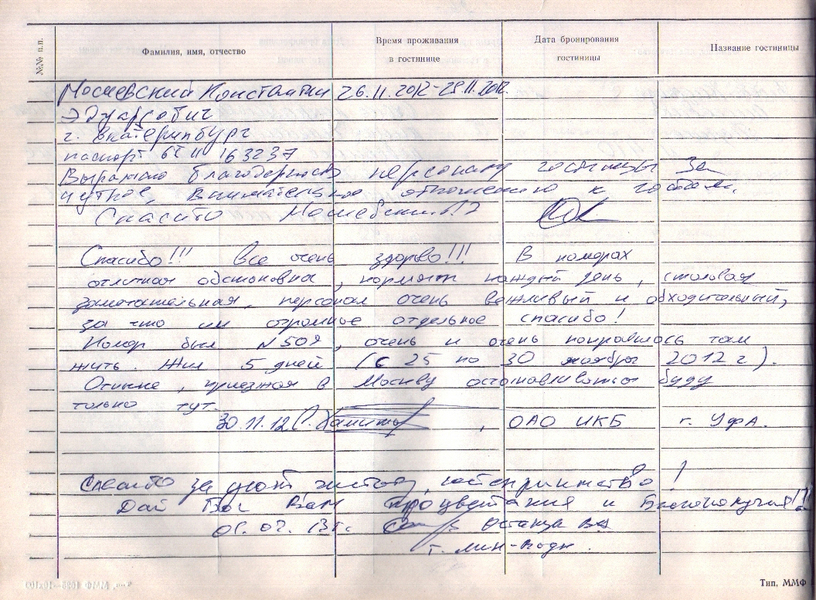 №№ п.п.
Фамилия, имя, отчество
Время проживания
в гостинице
Дата бронирования
гостиницы
Название гостиницы
Константин 26.11.2012-29.11.2012.
Эдуардович
г. Екатеринбург
паспорт 65 11 163237
Выражаю благодарность персоналу гостиницы за
чуткое, внимательное отношению к гостям.
Спасибо
Спасибо!!! Все очень здорово!!! В номерах
отличная обстановка, кормят каждый день, столовая
замечательная, персонал очень вежливый и обходительный,
за что им огромное отдельное спасибо!
Номер был N 509, очень и очень понравилось там
жить. Жил 5 дней (с 25 по 30 ноября 2012 г).
Отныне, приезжая в Москву останавливаться буду
только тут.
30.11.12 , ОАО ИКБ г. Уфа.
Спасибо за уют, гостеприимство!
Дай Бог Вам процветания и Благополучия!!!
01.02.13г.
г. Мин-Воды.
Тип. ММФ